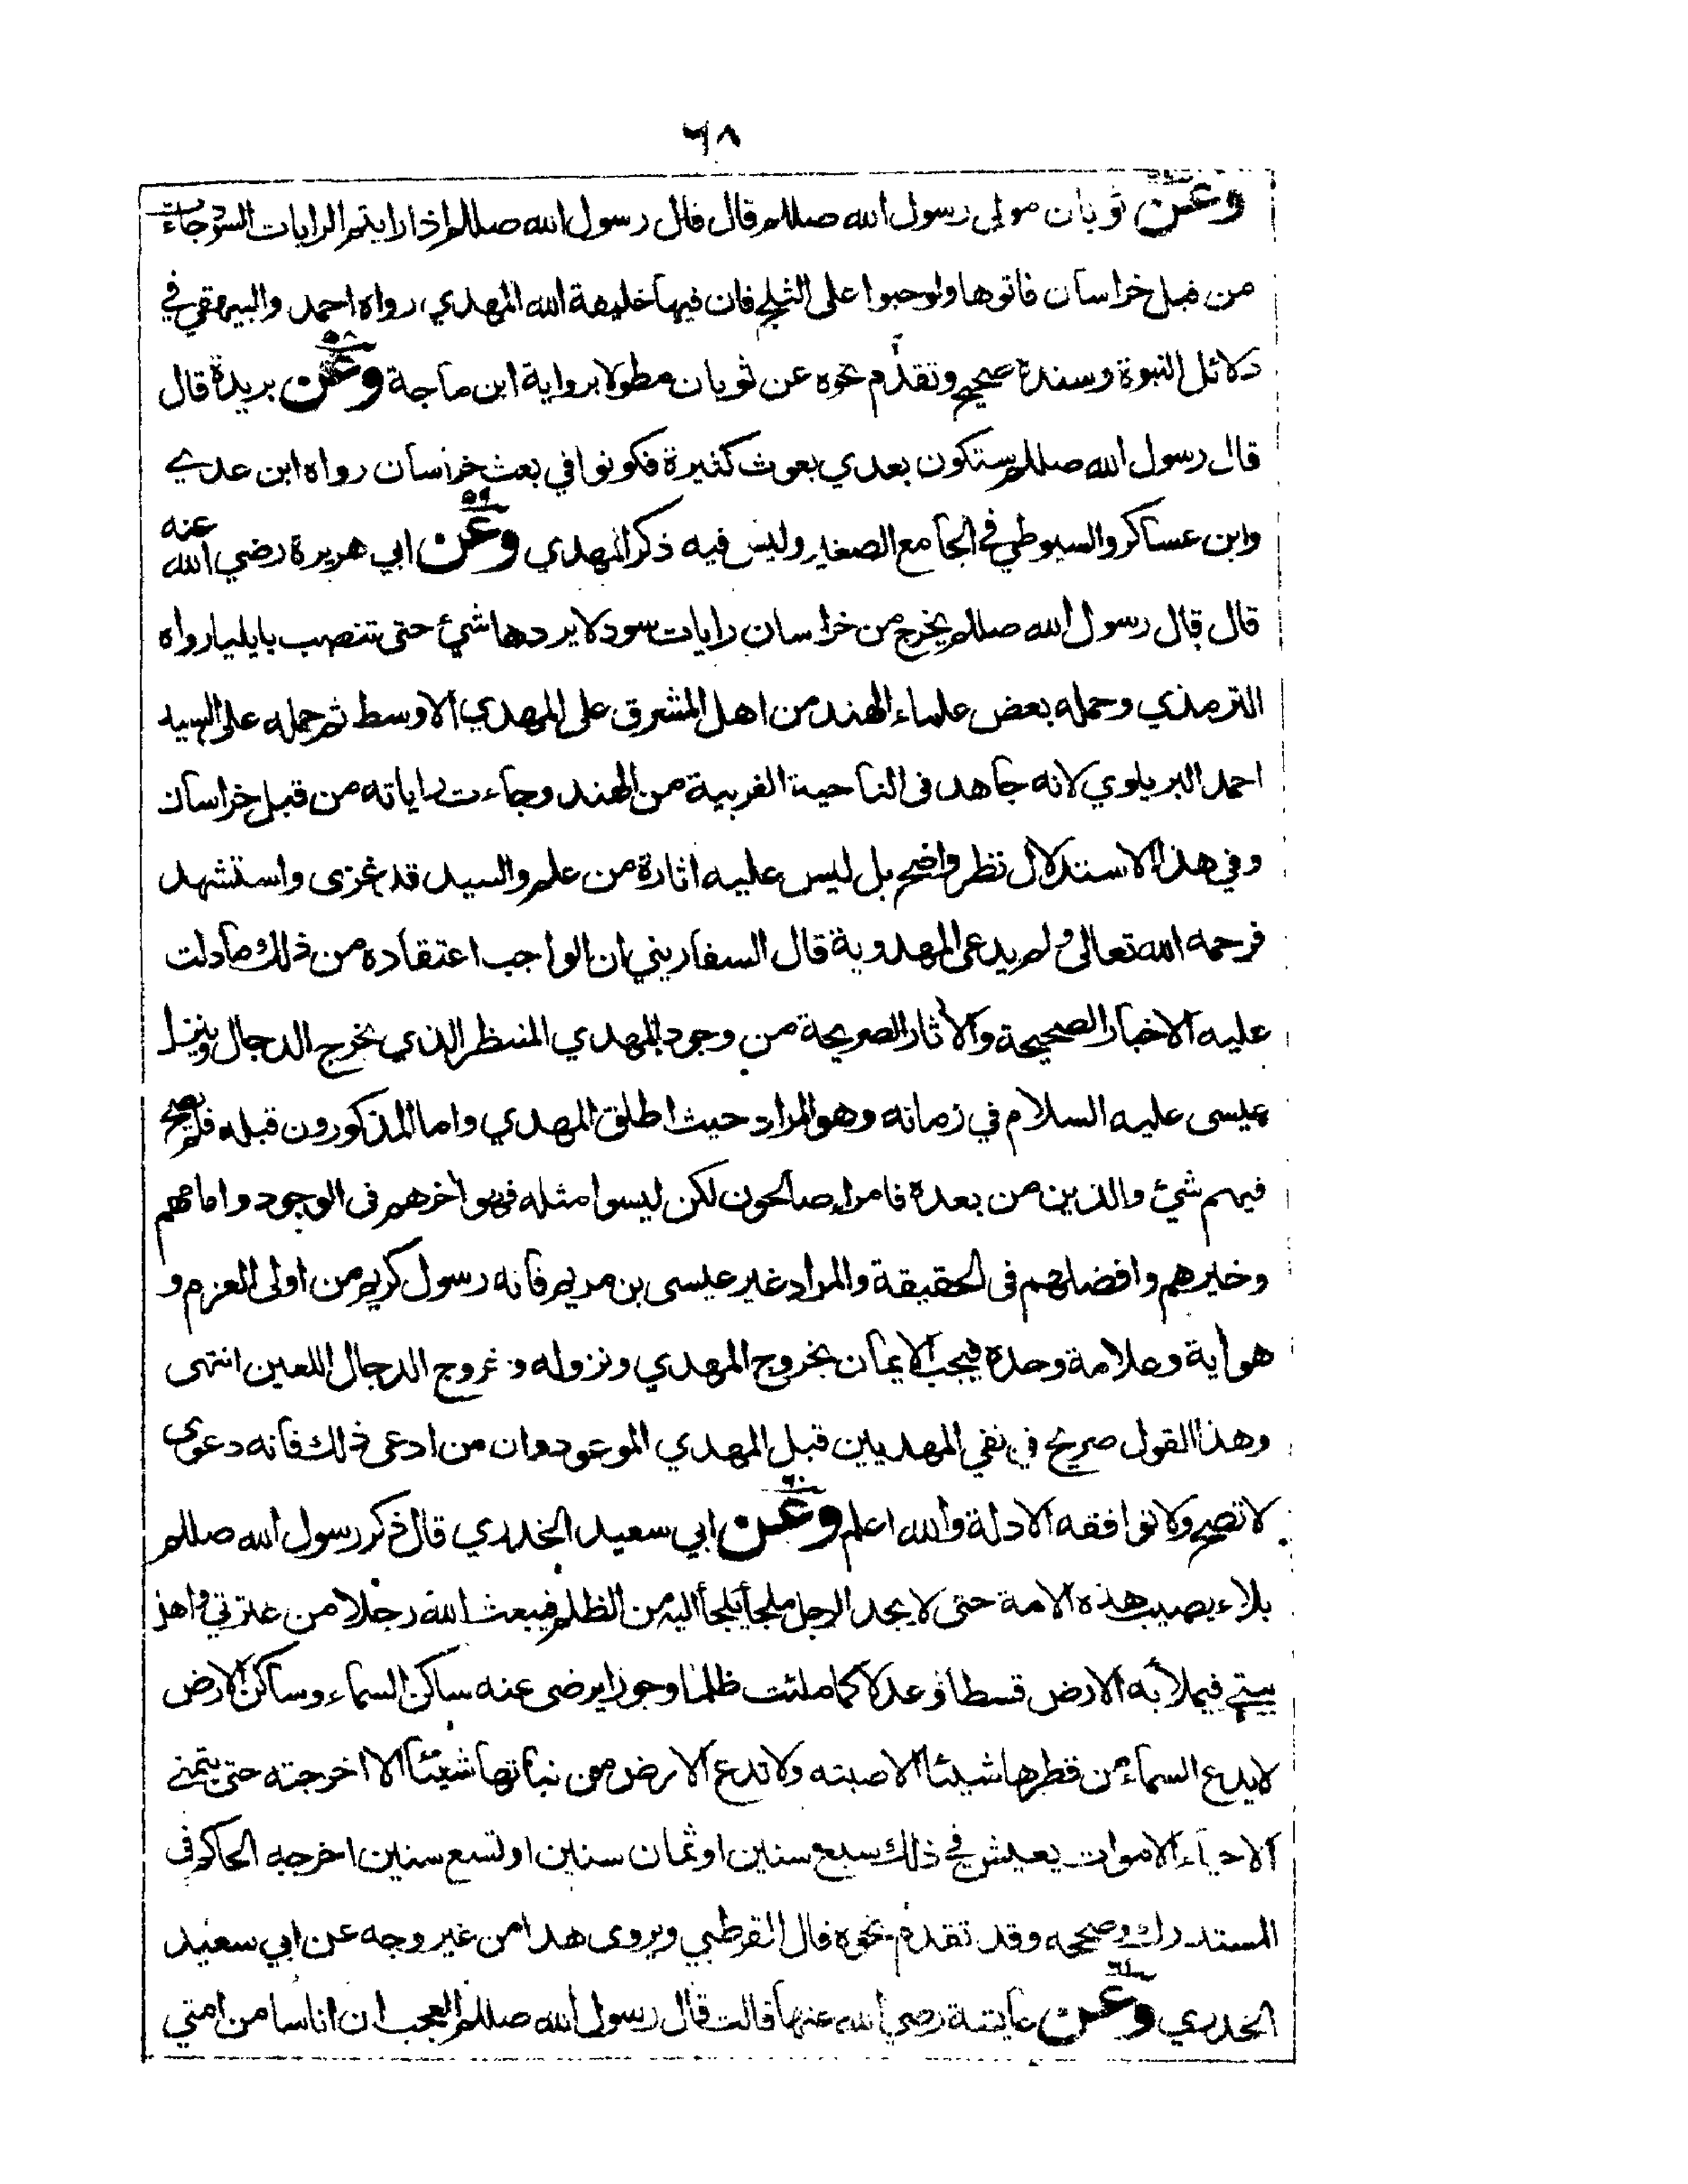 ٦٨
وعن ثوبان مولى رسول الله صللم قال قال رسول الله صللم اذا رايتم الرايات السود جاءت
من قبل خراسان فاتوها ولو حبوا على الثلج فان فيها خليفة الله المهدي رواه احمد والبيهقي في
دلائل النبوة وسنده صحيح وتقدم نحوه عن ثوبان مطولا برواية ابن ماجة وعن ٥٨ بريدة قال
قال رسول الله صللم ستكون بعدي بعوث كثيرة فكونوا في بعث خراسان رواه ابن عدي
وابن عساكر والسيوطي في الجامع الصغير وليس فيه ذكر المهدي وعن ٥٩ ابي هريرة رضي الله عنه
قال قال رسول الله صللم يخرج من خراسان رايات سود لا يردها شئ حتى تنصب بايليا رواه
الترمذي وحمله بعض علماء الهند من اهل المشرق على المهدي الاوسط ثم حمله على السيد
احمد البريلوي لانه جاهد فى الناحية الغربية من الهند وجاءت راياته من قبل خراسان
وفي هذا الاستدلال نظر واضح بل ليس عليه اثارة من علم والسيد قد غزى واستشهد
فرحمه الله تعالى ولم يدع المهدوية قال السفاريني ان الواجب اعتقاده من ذلك ما دلت
عليه الاخبار الصحيحة والاثار الصريحة من وجود المهدي المنتظر الذي يخرج الدجال وينزل
عيسى عليه السلام في زمانه وهو المراد حيث اطلق المهدي واما المذكورون قبله فلم يصح
فيهم شئ والذين من بعده فامراء صالحون لكن ليسوا مثله فهو اخرهم فى الوجود وامامهم
وخيرهم وافضلهم فى الحقيقة والمراد غير عيسى بن مريم فانه رسول كريم من اولى العزم و
هو اية وعلامة وحده فيجب الايمان بخروج المهدي ونزوله وخروج الدجال اللعين انتهى
وهذا القول صريح في نفي المهديين قبل المهدي الموعود وان من ادعى ذلك فانه دعوى
لا تصح ولا توافقه الادلة والله اعلم وعن ٦٠ ابي سعيد الخدري قال ذكر رسول الله صللم
بلاء يصيب هذه الامة حتى لا يجد الرجل ملجأ يلجأ اليه من الظلم فيبعث الله رجلا من عترتي واهل
بيتي فيملأ به الارض قسطا وعدلا كما ملئت ظلما وجورا يرضى عنه ساكن السماء وساكن الارض
لا يدع السماء من قطرها شيئا الا صبته ولا تدع الارض من نباتها شيئا الا اخرجته حتى يتمنى
الاحياء الاموات يعيش في ذلك سبع سنين او ثمان سنين او تسع سنين اخرجه الحاكم فى
المستدرك وصححه وقد تقدم نحوه قال القرطبي ويروى هذا من غير وجه عن ابي سعيد
الخدري وعن ٦١ عايشة رضي الله عنها قالت قال رسول الله صللم العجب ان اناسا من امتي